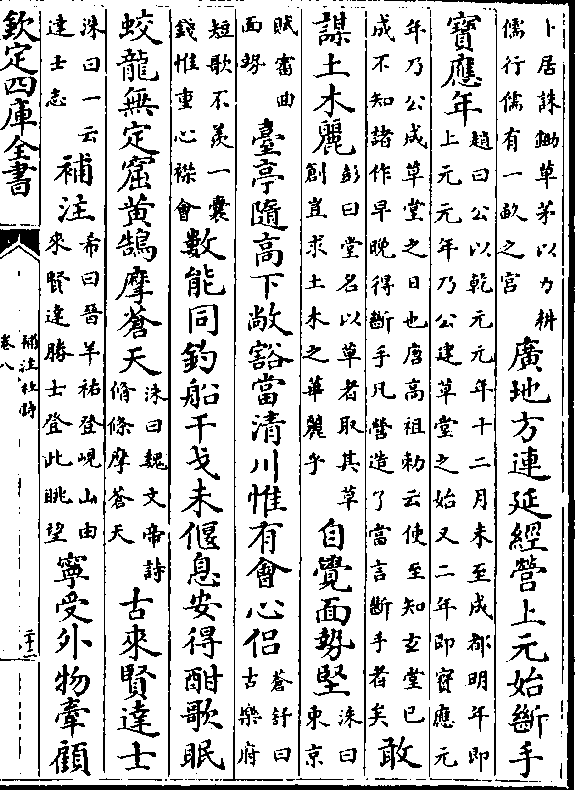 卜居誅鋤草茅以力耕
儒行儒有一畝之宮
廣地方連延經營上元始斷手
寶應年
趙曰公以乾元元年十二月末至成都明年即
上元元年乃公建草堂之始又二年即寶應元
年乃公成草堂之日也唐高祖勅云使至知玄堂已
成不知諸作早晚得斷手凡營造了當言斷手者矣
敢
謀土木麗
彭曰堂名以草者取其草
創豈求土木之華麗乎
自覺面勢堅
洙曰
東京
賦審曲
面勢
臺亭隨高下敞豁當清川惟有會心侶
蒼舒曰
古樂府
短歌不羨一囊
錢惟重心襟會
數能同釣船干戈未偃息安得酣歌眠
蛟龍無定窟黄鵠摩蒼天
洙曰魏文帝詩
脩條摩蒼天
古來賢達士
洙曰一云
達士志
補注
希曰晉羊祜登峴山由
來賢達勝士登此眺望
寧受外物牽顧
欽定四庫全書
補注杜詩
卷八
二十三